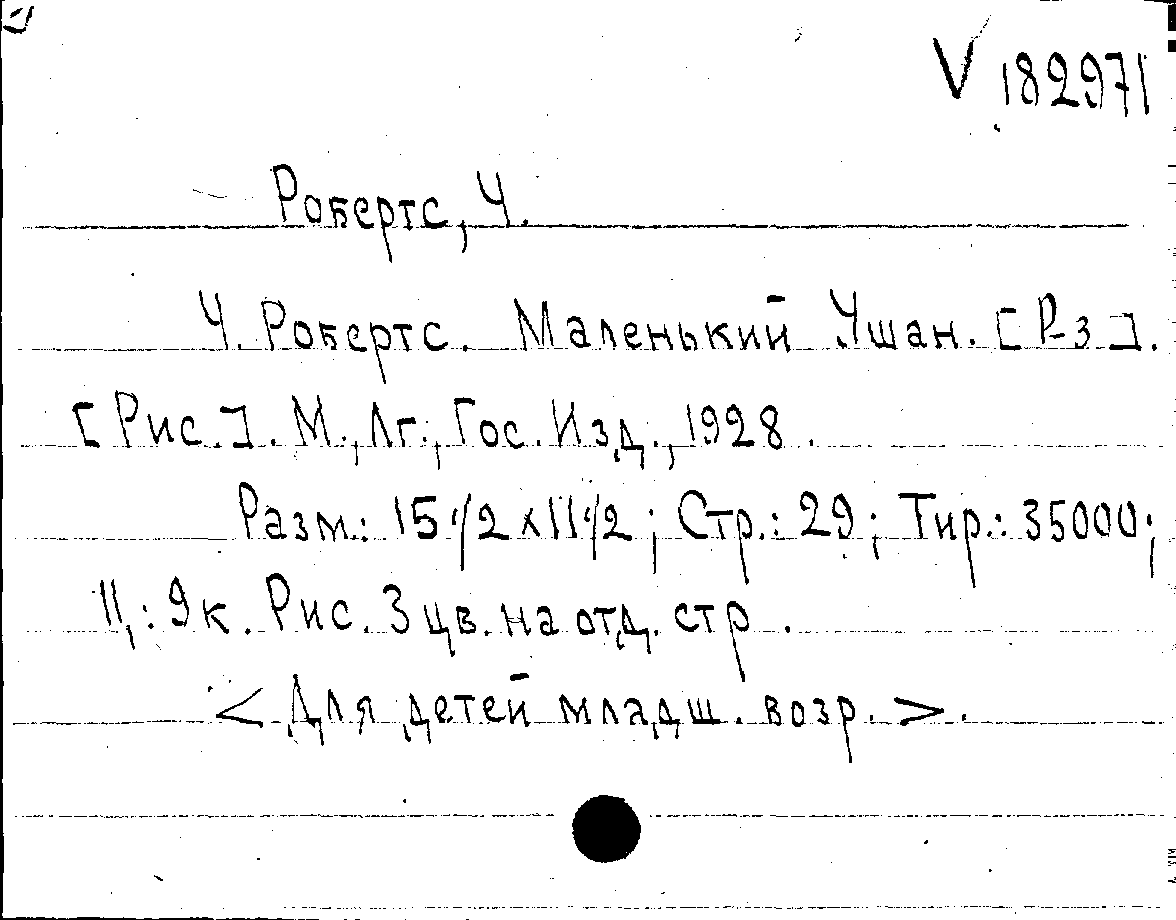 V 182971
Робертс, Ч.
Ч. Робертс. Маленький Ушан. [Р-з].
[Рис.]. М., Лг., Гос. Изд., 1928.
Разм.: 15 1/2 x 11 1/2; Стр.: 29; Тир.: 35000;
Ц.: 9к. Рис. 3 цв. на отд. стр.
<Для детей младш. возр.>.